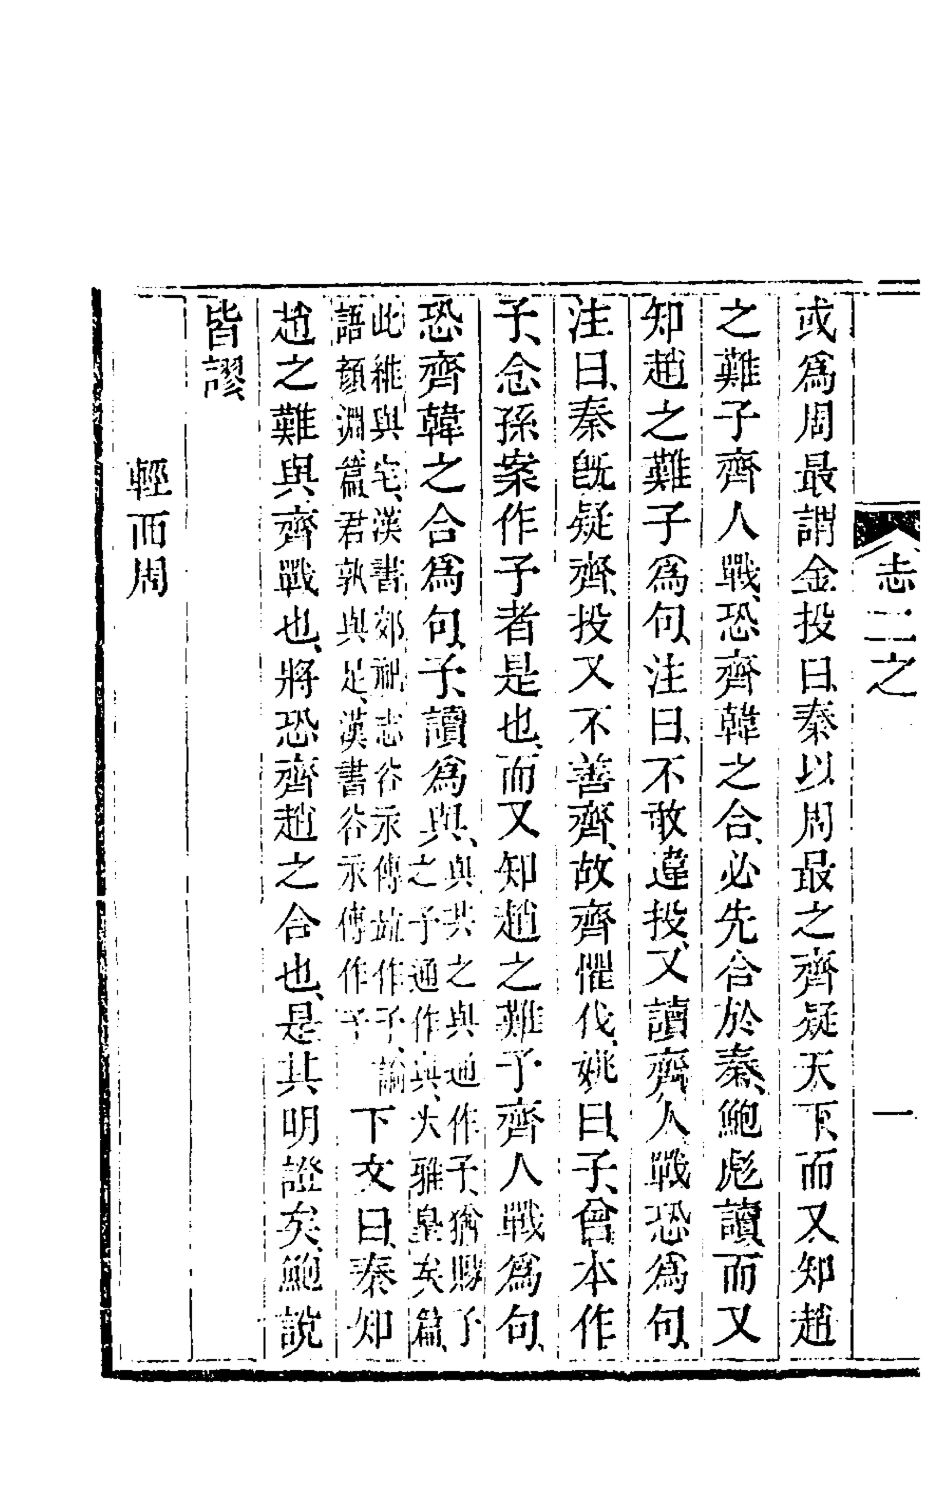 志二之 一
或爲周最謂金投曰、秦以周最之齊疑天下、而又知趙
之難子齊人戰、恐齊韓之合、必先合於秦、鮑彪讀而又
知趙之難子爲句、注曰、不敢違投、又讀齊人戰恐爲句、
注曰、秦旣疑齊、投又不善齊、故齊懼伐、姚曰、子、曾本作
予、念孫案作予者是也、而又知趙之難予齊人戰爲句、
恐齊韓之合爲句、予讀爲與、
與共之與通作予、猶賜予
之予通作與、大雅皇矣篇、
此維與宅、漢書郊祀志谷永傳並作予、論
語顏淵篇、君孰與足、漢書谷永傳作予
下文曰、秦知
趙之難與齊戰也、將恐齊趙之合也、是其明證矣、鮑說
皆謬、
輕西周